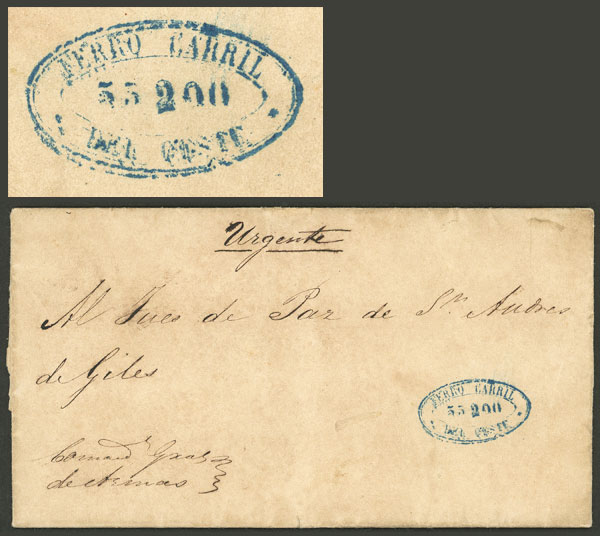 FERRO CARRIL
55 200
DEL OESTE
Urgente
Al Jues de Paz de Sn. Andres
de Giles
FERRO CARRIL
55 200
DEL OESTE
Comandr. Gral
de Armas